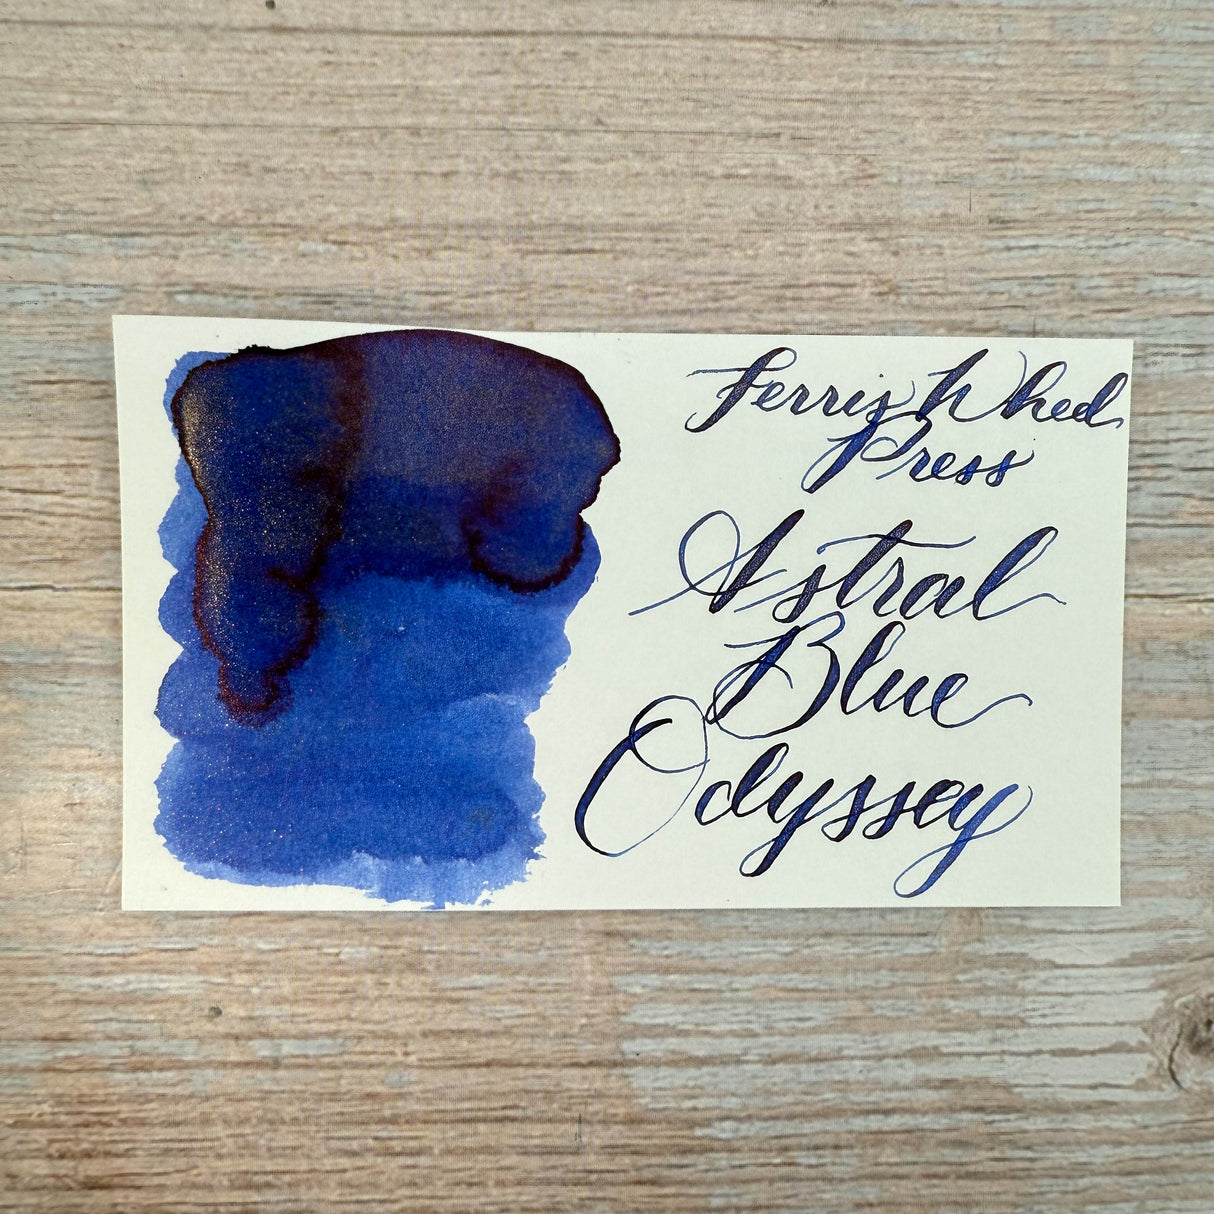 Ferris Wheel
Press
Astral
Blue
Odyssey